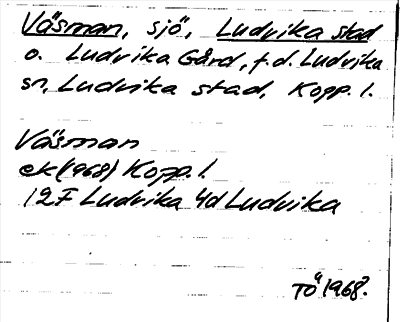 Väsman, sjö, Ludvika stad
o. Ludvika Gård, f.d. Ludvika
sn, Ludvika stad, Kopp. l.
Väsman
ek (1968) Kopp. l.
12F Ludvika 4d Ludvika
TÖ 1968.